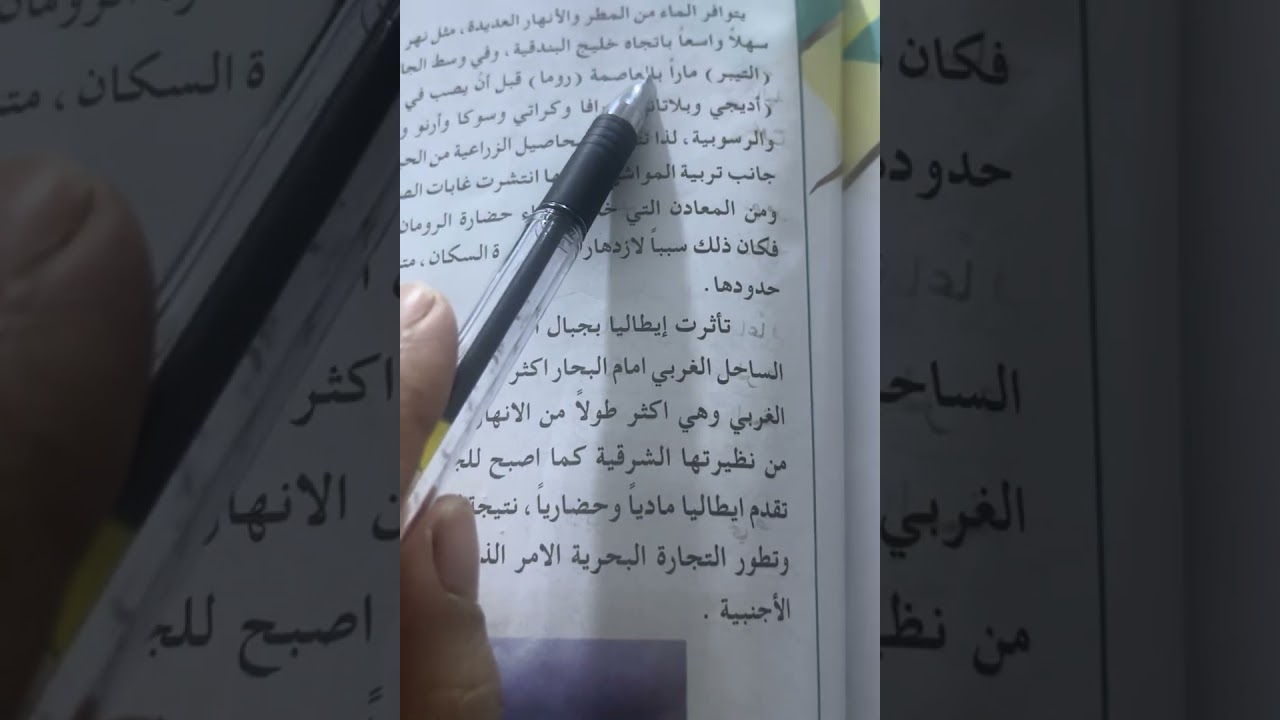 يتوافر الماء من المطر والأنهار العديدة ، مثل نهر
سهلاً واسعاً باتجاه خليج البندقية ، وفي وسط الجا
(التيبر) ماراً بالعاصمة (روما) قبل أن يصب في
(أديجي وبلاتا رافا وكراتي وسوكا وأرنو و
والرسوبية ، لذا محاصيل الزراعية من الح
جانب تربية المواش انتشرت غابات الص
ومن المعادن التي حضارة الرومان
فكان ذلك سبباً لازدهار ة السكان ، مت
حدودها .
تأثرت إيطاليا بجبال ا
الساحل الغربي امام البحار اكثر
الغربي وهي اكثر طولاً من الانهار
من نظيرتها الشرقية كما اصبح للج
تقدم ايطاليا مادياً وحضارياً ، نتيجة
وتطور التجارة البحرية الامر الذ
الأجنبية .